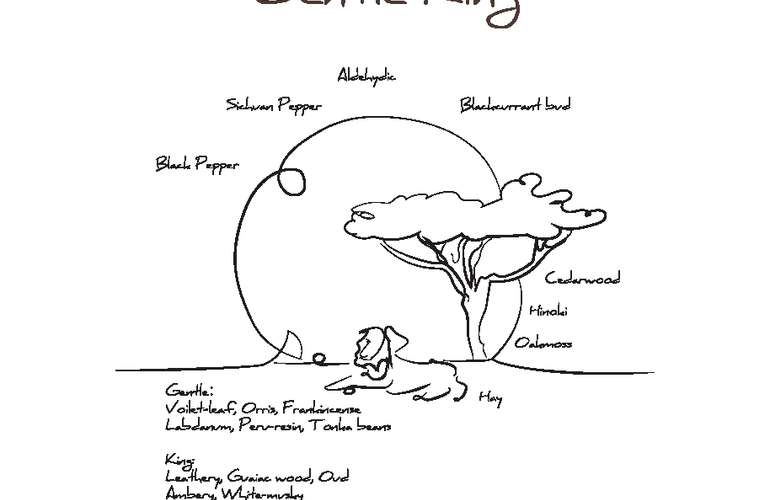 Gentle King
Aldehydic
Sichuan Pepper
Blackcurrant bud
Black Pepper
Cedarwood
Hinoki
Oakmoss
Hay
Gentle:
Voilet-leaf, Orris, Frankincense
Labdanum, Peru-resin, Tonka beans
King:
Leathery, Guaiac wood, Oud
Ambery, White-musky